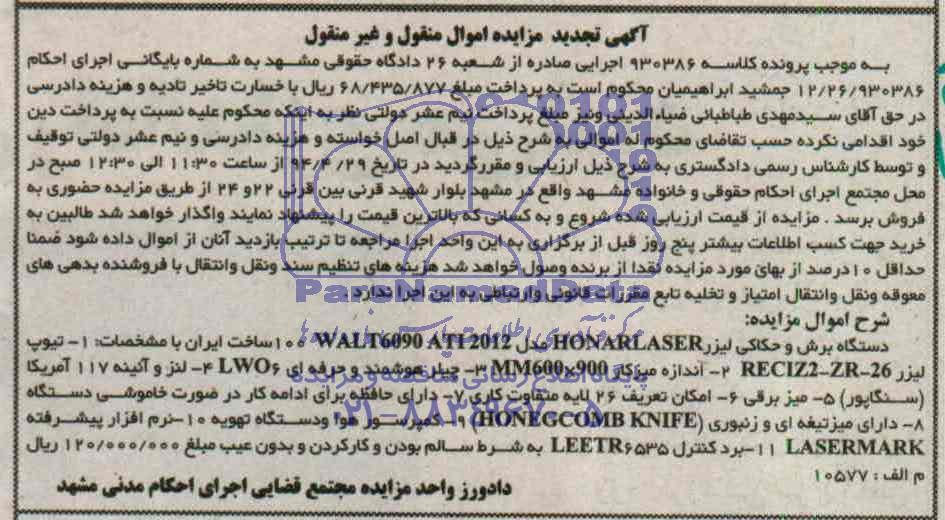 آگهی تجدید مزایده اموال منقول و غیر منقول
به موجب پرونده کلاسه ۹۳۰۳۸۶ اجرایی صادره از شعبه ۲۶ دادگاه حقوقی مشهد به شماره بایگانی اجرای احکام
۱۲/۲۶/۹۳۰۳۸۶ جمشید ابراهیمیان محکوم است به پرداخت مبلغ ۶۸/۴۳۵/۸۷۷ ریال با خسارت تاخیر تادیه و هزینه دادرسی
در حق آقای سیدمهدی طباطبائی ضیاءالدینی ونیز مبلغ پرداخت نیم عشر دولتی نظر به اینکه محکوم علیه نسبت به پرداخت دین
خود اقدامی نکرده حسب تقاضای محکوم له اموالی به شرح ذیل در قبال اصل خواسته و هزینه دادرسی و نیم عشر دولتی توقیف
و توسط کارشناس رسمی دادگستری به شرح ذیل ارزیابی و مقررگردید در تاریخ ۹۴/۴/۲۹ از ساعت ۱۱:۳۰ الی ۱۲:۳۰ صبح در
محل مجتمع اجرای احکام حقوقی و خانواده مشهد واقع در مشهد بلوار شهید قرنی بین قرنی ۲۲و ۲۴ از طریق مزایده حضوری به
فروش برسد . مزایده از قیمت ارزیابی شده شروع و به کسانی که بالاترین قیمت را پیشنهاد نمایند واگذار خواهد شد طالبین به
خرید جهت کسب اطلاعات بیشتر پنج روز قبل از برگزاری به این واحد اجرا مراجعه تا ترتیب بازدید آنان از اموال داده شود ضمنا
حداقل ۱۰درصد از بهای مورد مزایده نقدا از برنده وصول خواهد شد هزینه های تنظیم سند ونقل وانتقال با فروشنده بدهی های
معوقه ونقل وانتقال امتیاز و تخلیه تابع مقررات قانونی وارتباطی به این اجرا ندارد .
شرح اموال مزایده:
دستگاه برش و حکاکی لیزرHONARLASER مدل WALT6090 ATI 2012 ۱۰۰ساخت ایران با مشخصات: ۱- تیوپ
لیزر RECIZ2-ZR-26 ۲- اندازه میزکار MM600x900 ۳- چیلر هوشمند و حرفه ای LWO۶ ۴- لنز و آئینه ۱۱۷ آمریکا
(سنگاپور) ۵- میز برقی ۶- امکان تعریف ۲۶ لایه متفاوت کاری ۷- دارای حافظه برای ادامه کار در صورت خاموشی دستگاه
۸- دارای میزتیغه ای و زنبوری (HONEGCOMB KNIFE) ۹- کمپرسور هوا ودستگاه تهویه ۱۰-نرم افزار پیشرفته
LASERMARK ۱۱-برد کنترل LEETR۶۵۳۵ به شرط سالم بودن و کارکردن و بدون عیب مبلغ ۱۲۰/۰۰۰/۰۰۰ ریال
م الف : ۱۰۵۷۷
دادورز واحد مزایده مجتمع قضایی اجرای احکام مدنی مشهد
ParsNamadData
پایگاه اطلاع رسانی مناقصه و مزایده